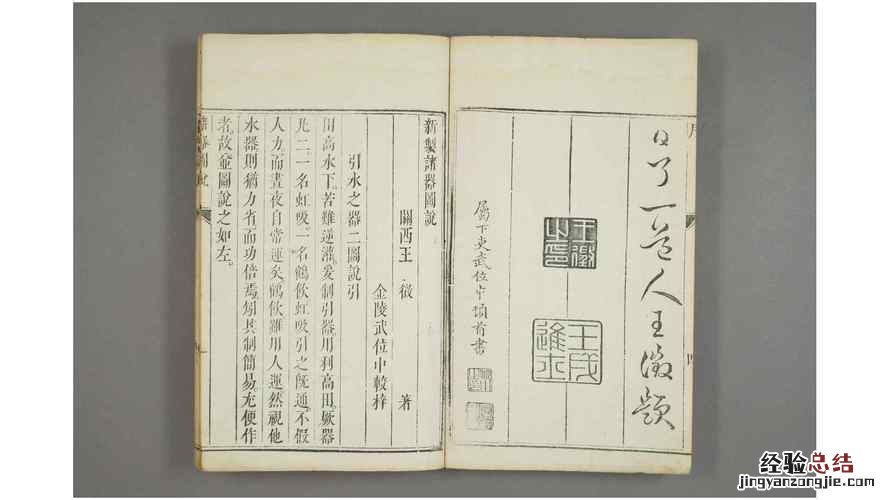 序
四
了一道人王徵題
王徵之印
壬戌進士
屬下吏武位中頓首書
新製諸器圖說
關西王 徵 著
金陵武位中較梓
引水之器二圖說引
田高水下苦難逆灌爰制引器用利高田厥器
凡二一名虹吸一名鶴飲虹吸引之旣通不假
人力而晝夜自常運矣鶴飲雖用人運然視他
水器則猶力省而功倍焉矧其制簡易尤便作
者故僉圖說之如左
諸器圖說
一
经验总结
jingyanzongjie.com